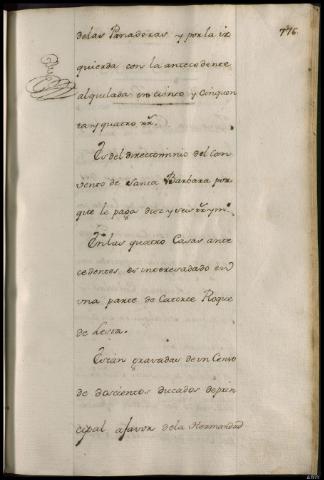 776.
de las Panaderas y por la iz
quierda con la antecedente
alquilada en ciento y cinquen
ta y quatro rr.
Es del directo minio del Con
vento de Santa Barbara por
que le paga diez y seis rr. y mo.
En las quatro Casas ante
cedentes es interesadado en
una parte de Catorce Roque
de
Estan gravadas de un Censo
de doscientos ducados de prin
cipal a favor de la Hermandad